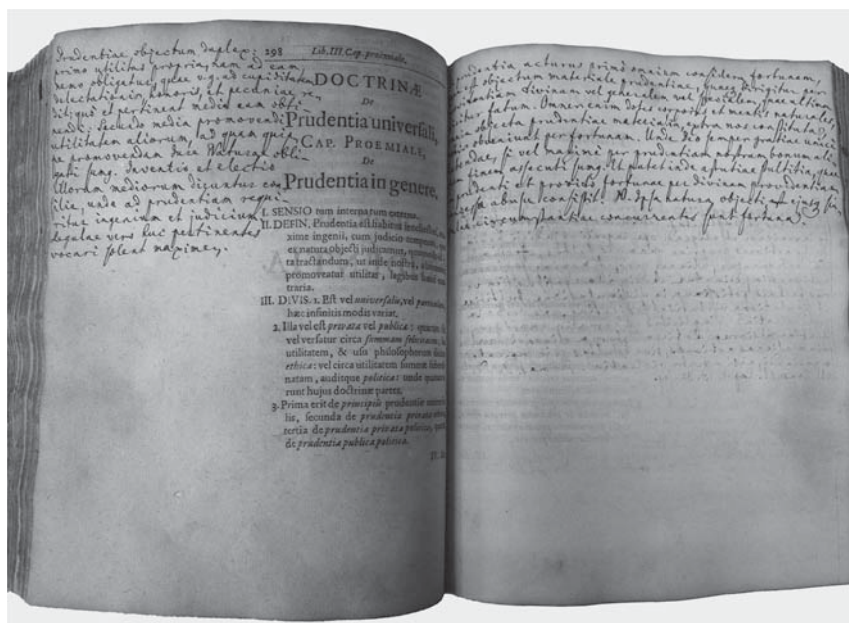 Prudentiae objectum duplex:
primo utilitas propria, nam ad eam
nemo obligatur, quae vig. ad cupiditatem
delectationis, honoris, et pecuniae re-
diti; quo et pertinent media eam obti-
nendi. Secundo media promovendi
utilitatem aliorum, ad quam quip-
pe promovendam Naturae obli-
gati sunt. Inventio et electio
illorum mediorum dicuntur con-
silia, unde ad prudentiam requi-
ritur ingenium et judicium
Regulae vero huc pertinentes
vocari solent maximes.
298 Lib. III. Cap. proëmiale.
DOCTRINÆ
De
Prudentia universali,
CAP. PROEMIALE,
De
Prudentia in genere.
I. SENSIO tum interna tum externa.
II. DEFIN. Prudentia est habitus intellectus,
xime ingenii, cum judicio
ex natura objecti judicantis,
tractandum, ut inde nostra,
promoveatur utilitas, legibus
traria.
III. DIVIS. 1. Est vel universalis, vel particularis,
hæc infinitis modis variat.
2. Illa vel est privata vel publica:
vel versatur circa summam felicitatem,
utilitatem, & usu philosophorum
ethica: vel circa utilitatem
natam, auditque politica: unde quatuor
runt hujus doctrinæ partes.
3. Prima erit de principiis prudentiæ
lis, secunda de prudentia privata
tertia de prudentia privata politica,
de prudentia publica politica.
prudentia acturus primo omnium consideret fortunam,
est objectum materiale prudentiae, quae dirigitur per
providentiam divinam vel generalem vel specialem, quae ultima
dicitur fatum. Omnes enim dotes corporis et mentis naturales,
objecta prudentiae materialia extra nos constituta,
obveniunt per fortunam. Unde Deo semper gratiae
agendae, si vel maxime per prudentiam nostram bonum ali-
finem assecuti sumus. Et patet inde astutiae stultitia, quae
prudenti et provido fortunae per divinam providentiam
abusu consistit. NB. ipsa natura objecti et ejus
circumstantiae concurrentes sunt fortuna.